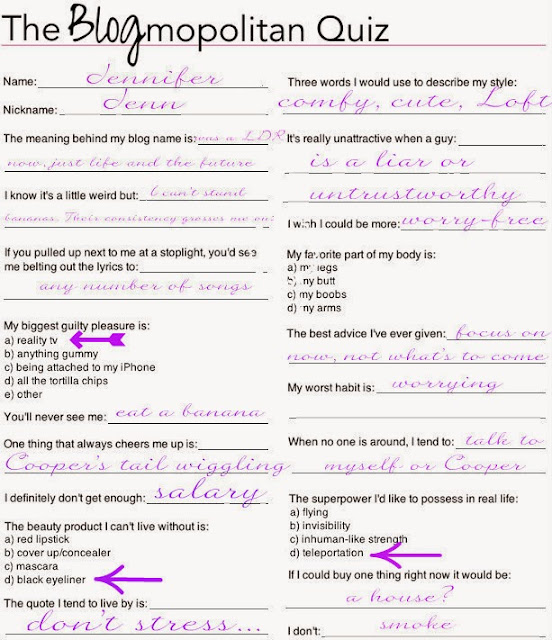 The Blogmopolitan Quiz
Name: Jennifer
Nickname: Jenn
The meaning behind my blog name is: was a LDR
now, just life and the future
I know it's a little weird but: I can't stand
bananas. Their consistency grosses me out
If you pulled up next to me at a stoplight, you'd see
me belting out the lyrics to:
any number of songs
My biggest guilty pleasure is:
a) reality tv
b) anything gummy
c) being attached to my iPhone
d) all the tortilla chips
e) other
You'll never see me: eat a banana
One thing that always cheers me up is:
Cooper's tail wiggling
I definitely don't get enough: salary
The beauty product I can't live without is:
a) red lipstick
b) cover up/concealer
c) mascara
d) black eyeliner
The quote I tend to live by is:
don't stress...
Three words I would use to describe my style:
comfy, cute, Loft
It's really unattractive when a guy:
is a liar or
untrustworthy
I wish I could be more: worry-free
My favorite part of my body is:
a) my legs
b) my butt
c) my boobs
d) my arms
The best advice I've ever given: focus on
now, not what's to come
My worst habit is: worrying
When no one is around, I tend to: talk to
myself or Cooper
The superpower I'd like to possess in real life:
a) flying
b) invisibility
c) inhuman-like strength
d) teleportation
If I could buy one thing right now it would be:
a house?
I don't: smoke